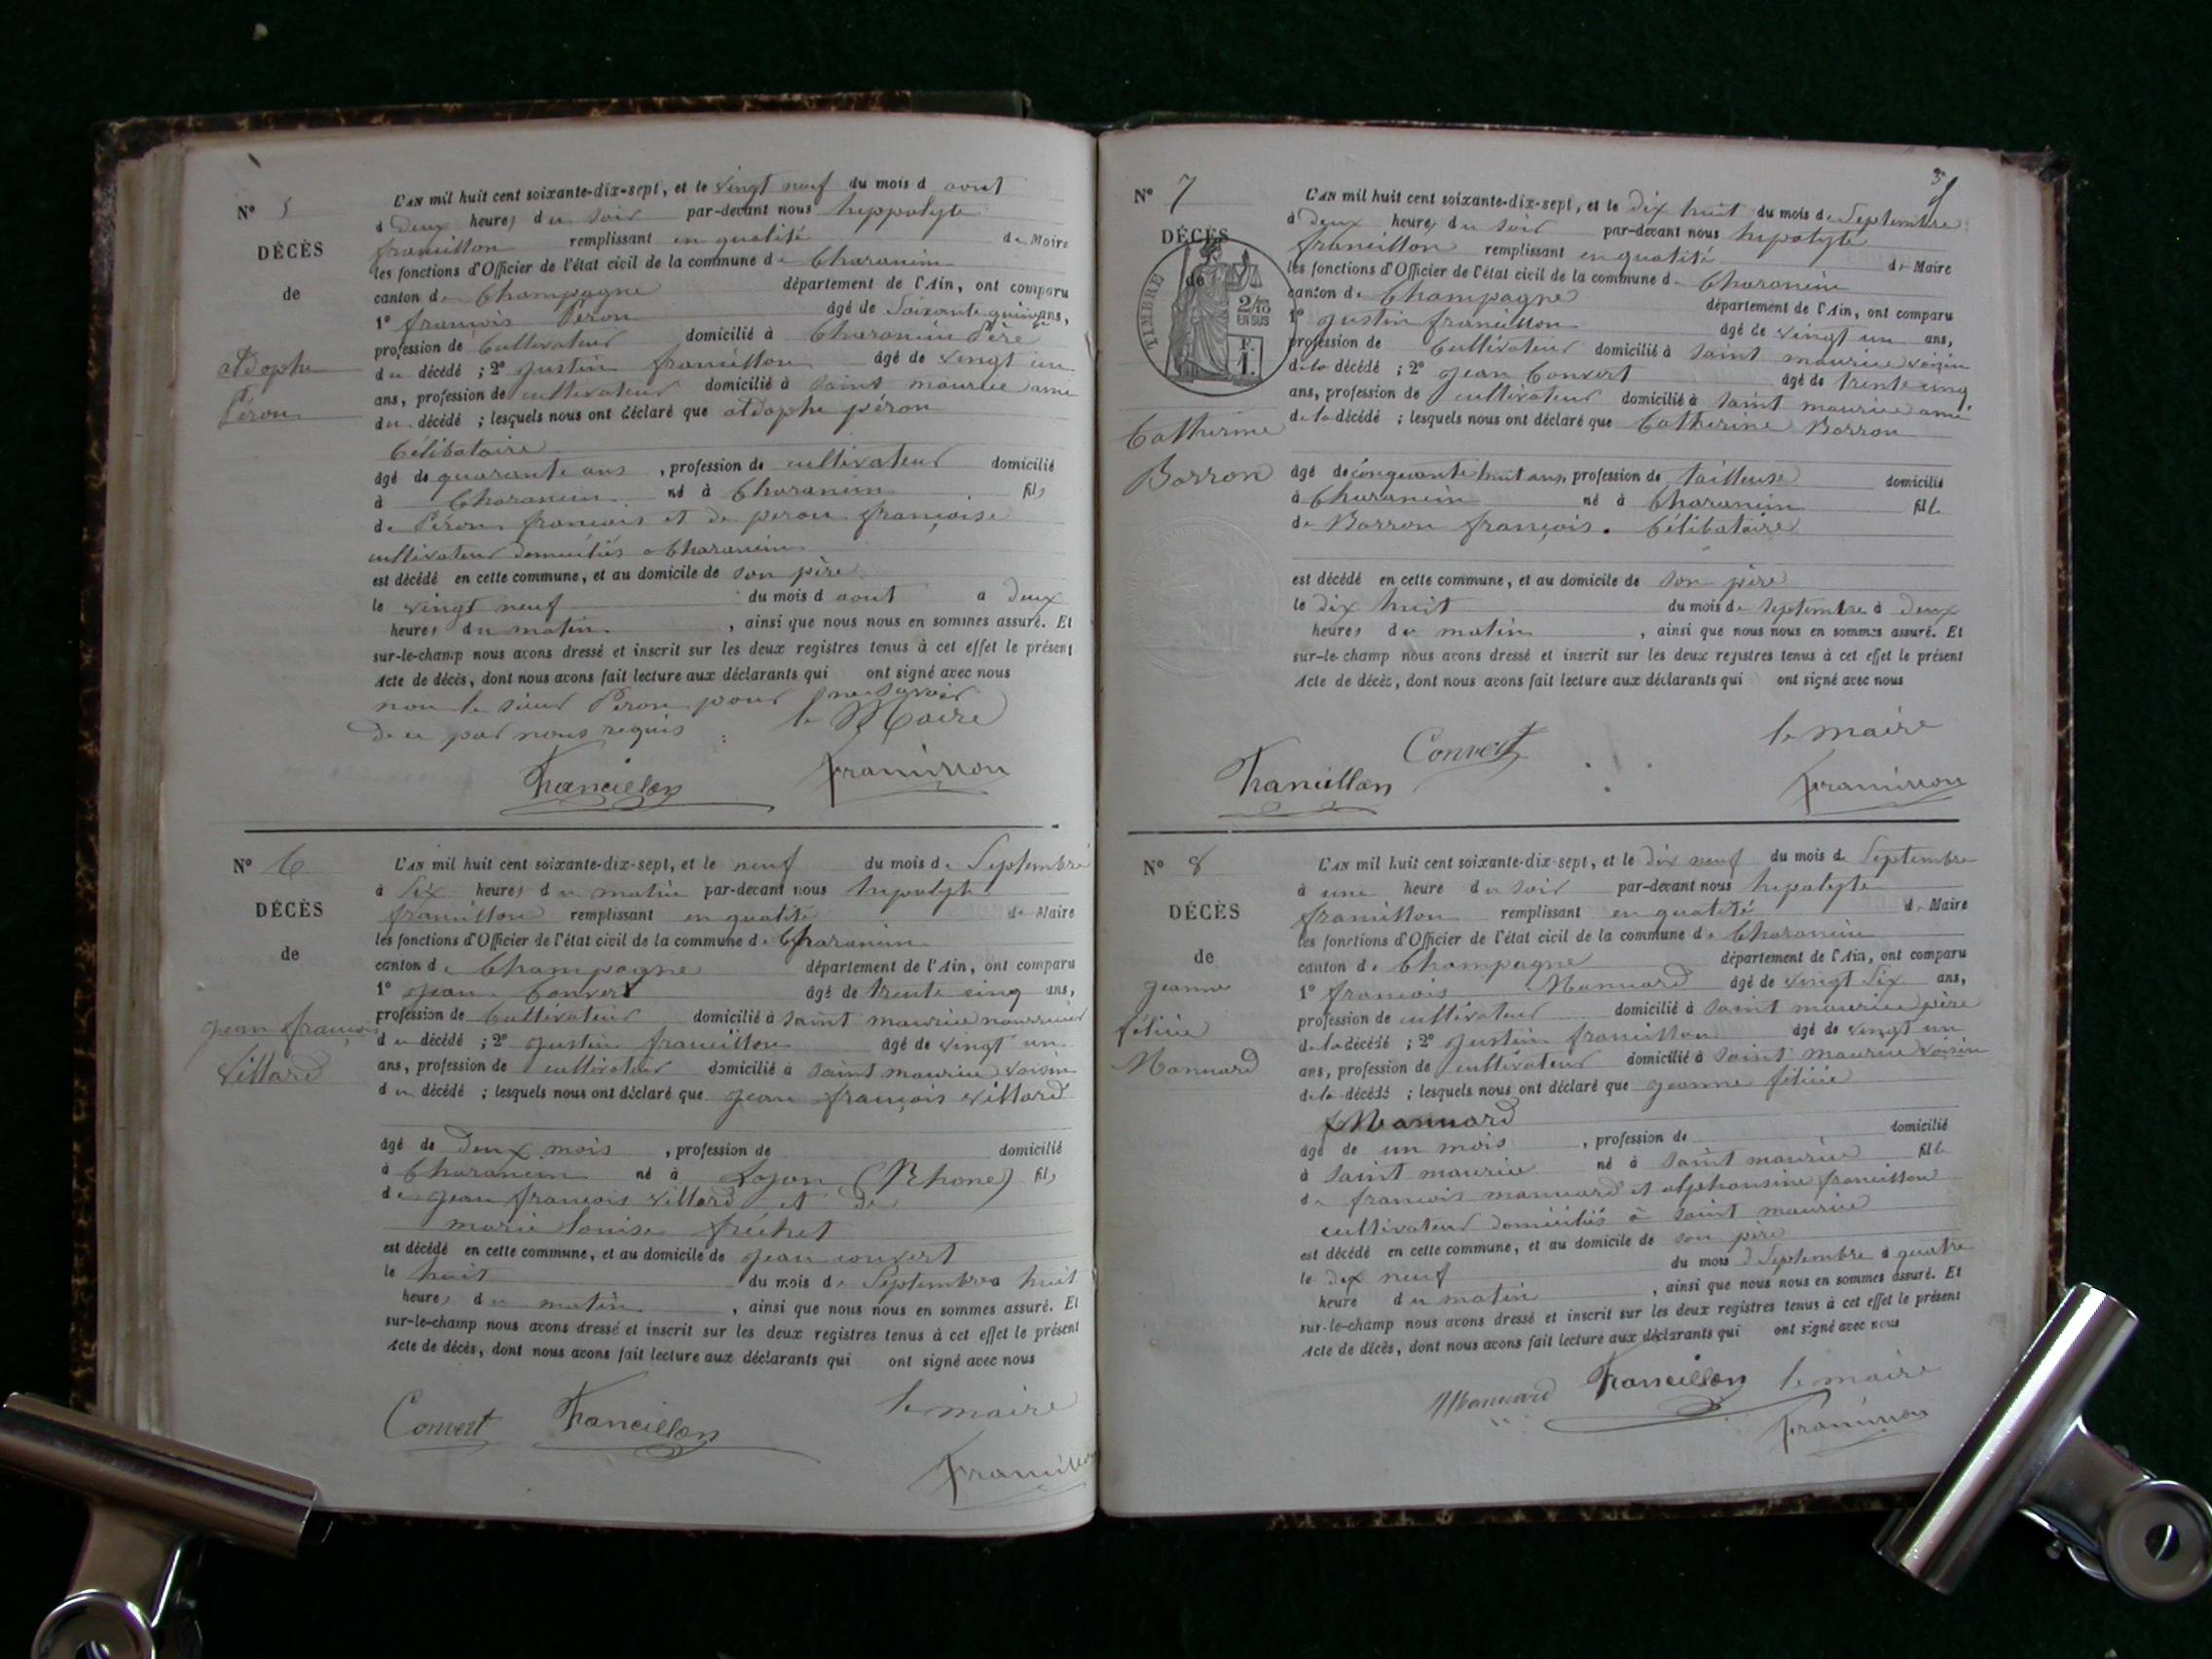 N° 5
DÉCÈS
de
Adophe
Péron
L'AN mil huit cent soixante-dix-sept, et le vingt neuf du mois d aout
à deux heures du soir par-devant nous hyppolyte
francillon remplissant en qualité de Maire
les fonctions d'Officier de l'état civil de la commune de Charancin
canton de Champagne département de l'Ain, ont comparu
1° francois Péron âgé de Soixante quinze ans,
profession de Cultivateur domicilié à Charancin Père
du décédé ; 2° justin francillon âgé de vingt un
ans, profession de cultivateur domicilié à Saint maurice ami
du décédé ; lesquels nous ont déclaré que Adophe péron
Célibataire
âgé de quarante ans , profession de cultivateur domicilié
à Charancin né à Charancin fils
de Péron francois et de peron françoise
cultivateur domiciliés a Charancin
est décédé en cette commune, et au domicile de son père
le vingt neuf du mois d aout a deux
heures du matin , ainsi que nous nous en sommes assuré. Et
sur-le-champ nous avons dressé et inscrit sur les deux registres tenus à cet effet le présent
Acte de décès, dont nous avons fait lecture aux déclarants qui ont signé avec nous
non le sieur Péron pour ne savoir
de ce par nous requis le Maire
Francillon francillon
N° 6
DÉCÈS
de
jean françois
Villard
L'AN mil huit cent soixante-dix-sept, et le neuf du mois de Septembre
à Six heures du matin par-devant nous hypolyte
francillon remplissant en qualité de Maire
les fonctions d'Officier de l'état civil de la commune de Charancin
canton de Champagne département de l'Ain, ont comparu
1° jean Convert âgé de trente cinq ans,
profession de Cultivateur domicilié à Saint maurice nourricier
du décédé ; 2° justin francillon âgé de vingt un
ans, profession de cultivateur domicilié à Saint maurice voisin
du décédé ; lesquels nous ont déclaré que jean françois villard
âgé de deux mois , profession de domicilié
à Charancin né à Lyon (Rhone) fils
de jean francois villard et de
marie louise fréchet
est décédé en cette commune, et au domicile de jean convert
le huit du mois de Septembre a huit
heures du matin , ainsi que nous nous en sommes assuré. Et
sur-le-champ nous avons dressé et inscrit sur les deux registres tenus à cet effet le présent
Acte de décès, dont nous avons fait lecture aux déclarants qui ont signé avec nous
Convert Francillon le maire
francillon
N° 7
DÉCÈS
de
TIMBRE
2/10
EN SUS
F.
1.
Catherine
Borron
L'AN mil huit cent soixante-dix-sept, et le dix huit du mois de Septembre
à deux heures du soir par-devant nous hypolyte
francillon remplissant en qualité de Maire
les fonctions d'Officier de l'état civil de la commune de Charancin
canton de Champagne département de l'Ain, ont comparu
1° justin francillon âgé de vingt un ans,
profession de Cultivateur domicilié à Saint maurice voisin
de la décédé ; 2° jean Convert âgé de trente cinq
ans, profession de cultivateur domicilié à Saint maurice ami
de la décédé ; lesquels nous ont déclaré que Catherine Borron
âgé de cinquante huit ans, profession de tailleuse domicilié
à Charancin né à Charancin fille
de Borron françois. Célibataire
est décédé en cette commune, et au domicile de son père
le dix huit du mois de septembre à deux
heures du matin , ainsi que nous nous en sommes assuré. Et
sur-le-champ nous avons dressé et inscrit sur les deux registres tenus à cet effet le présent
Acte de décès, dont nous avons fait lecture aux déclarants qui ont signé avec nous
Francillon Convert le maire
francillon
N° 8
DÉCÈS
de
jeanne
féliciè
Mannard
L'AN mil huit cent soixante-dix-sept, et le dix neuf du mois de Septembre
à une heure du soir par-devant nous hypolyte
francillon remplissant en qualité de Maire
les fonctions d'Officier de l'état civil de la commune de Charancin
canton de Champagne département de l'Ain, ont comparu
1° francois Mannard âgé de vingt Six ans,
profession de cultivateur domicilié à Saint maurice père
de la décédé ; 2° justin francillon âgé de vingt un
ans, profession de cultivateur domicilié à Saint maurice voisin
de la décédé ; lesquels nous ont déclaré que jeanne féliciè
Mannard
âgé de un mois , profession de domicilié
à Saint maurice né à Saint maurice fille
de francois mannard et alphonsine francillon
cultivateur domiciliés à Saint maurice
est décédé en cette commune, et au domicile de son père
le dix neuf du mois d Septembre à quatre
heure du matin , ainsi que nous nous en sommes assuré. Et
sur-le-champ nous avons dressé et inscrit sur les deux registres tenus à cet effet le présent
Acte de décès, dont nous avons fait lecture aux déclarants qui ont signé avec nous
Mannard Francillon le maire
francillon